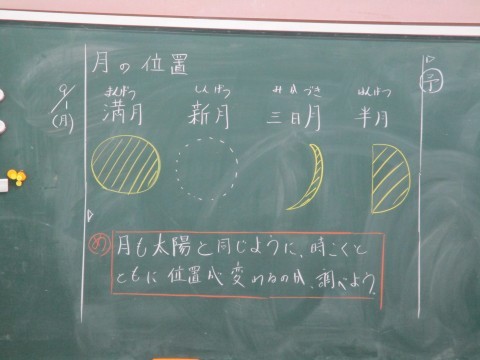 月の位置
9/1(月)
まんげつ しんげつ みかづき はんげつ
満月 新月 三日月 半月
め 月も太陽と同じように、時こくと
ともに位置が変わるのか、調べよう。
予